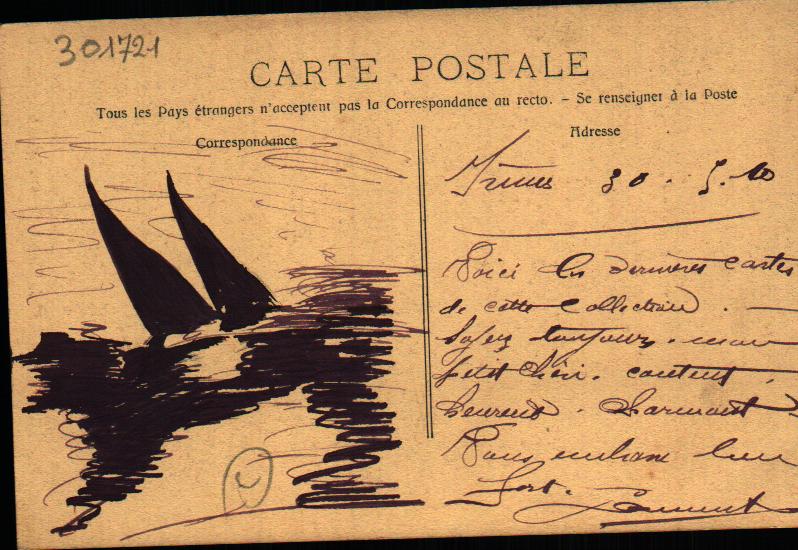 301721
CARTE POSTALE
Tous les Pays étrangers n'acceptent pas la Correspondance au recto. - Se renseigner à la Poste
Correspondance
Adresse
30. 5. 10
Voici les dernières cartes
de cette collection.
Soyez toujours. mon
petit chéri. content,
heureux. charmant
Vous embrasse bien
fort.